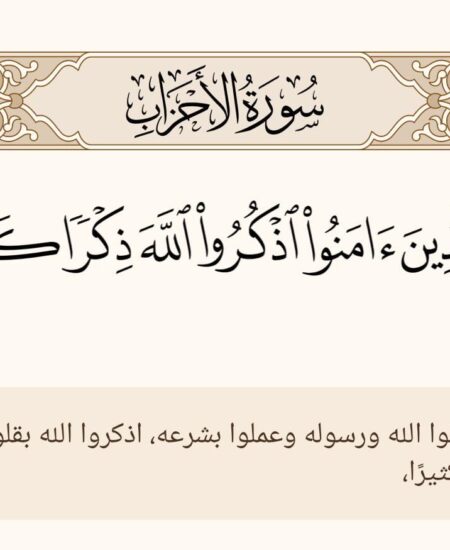 سُورَةُ الأَحْزَابِ
ءَامَنُوا۟ ٱذْكُرُوا۟ ٱللَّهَ ذِكْرًا
الله ورسوله وعملوا بشرعه، اذكروا الله